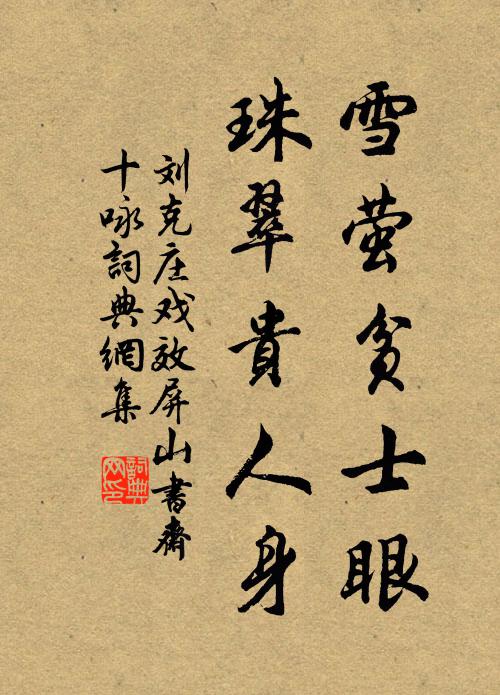 雪萤贫士眼
珠翠貴人身
刘克庄戏效屏山書齋
十咏詞典網集
詞典网印